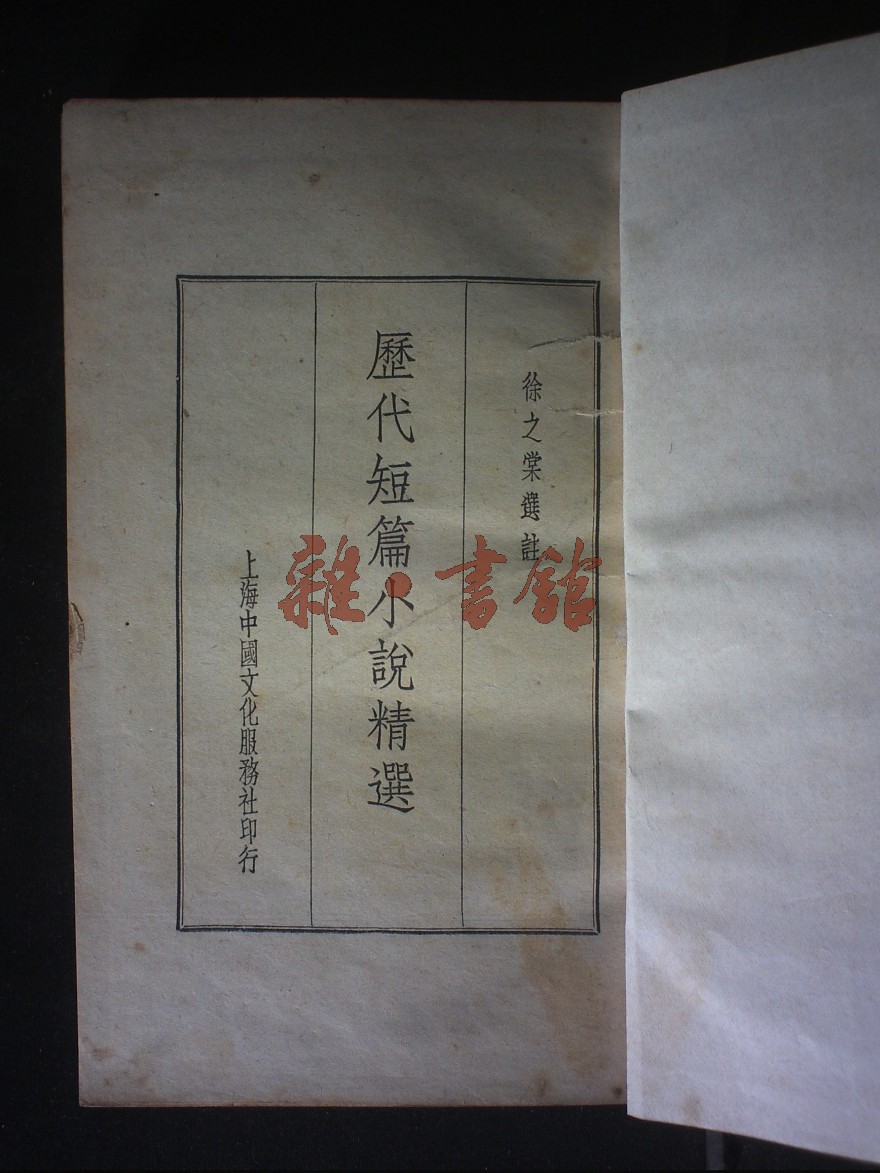 徐之棠選註
歷代短篇小說精選
上海中國文化服務社印行
雜·書館